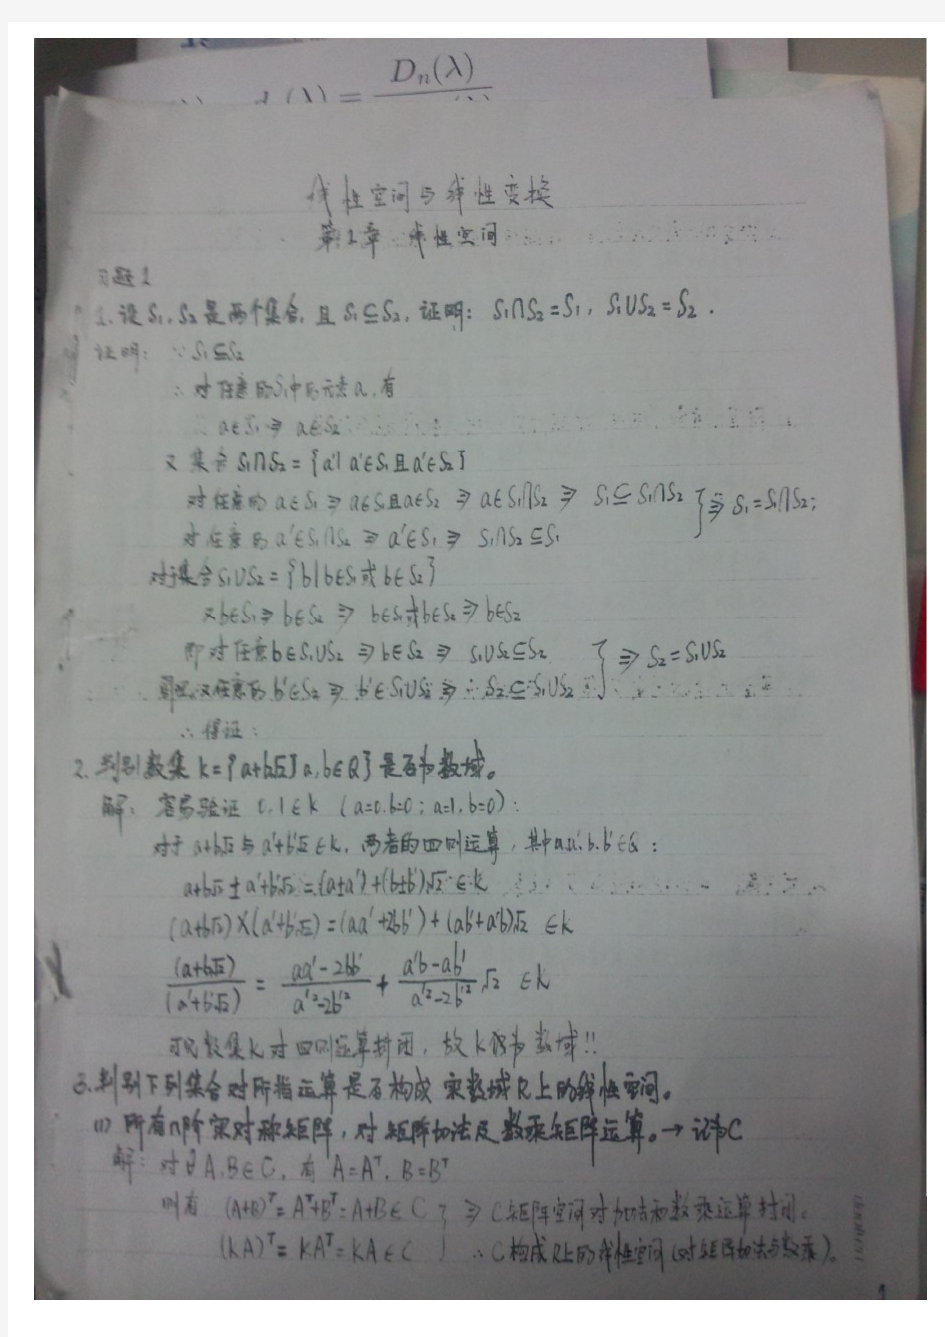 D_n(λ)
d (λ) =
线性空间与线性变换
第1章 线性空间
习题1
1. 设S₁, S₂是两个集合, 且S₁⊆S₂, 证明: S₁∩S₂=S₁, S₁∪S₂=S₂.
证明: ∵S₁⊆S₂
∴对任意的S₁中的元素a, 有
a∈S₁⇒a∈S₂
又集合S₁∩S₂={a'| a'∈S₁且a'∈S₂}
对任意的a∈S₁⇒a∈S₁且a∈S₂⇒a∈S₁∩S₂⇒S₁⊆S₁∩S₂ } ⇒S₁=S₁∩S₂;
对任意的a'∈S₁∩S₂⇒a'∈S₁⇒S₁∩S₂⊆S₁
对于集合S₁∪S₂={b|b∈S₁或b∈S₂}
又b∈S₁⇒b∈S₂⇒b∈S₁或b∈S₂⇒b∈S₂
即对任意b∈S₁∪S₂⇒b∈S₂⇒S₁∪S₂⊆S₂ } ⇒S₂=S₁∪S₂
又任意的b'∈S₂⇒b'∈S₁∪S₂⇒∴S₂⊆S₁∪S₂
∴得证:
2. 判别数集k={a+b√2| a,b∈Q}是否为数域。
解: 容易验证0,1∈k (a=0,b=0; a=1,b=0):
对于a+b√2与a'+b'√2∈k, 两者的四则运算, 其中a,a',b,b'∈Q:
a+b√2±a'+b'√2=(a±a')+(b±b')√2∈k
(a+b√2)×(a'+b'√2)=(aa'+2bb')+(ab'+a'b)√2 ∈k
(a+b√2)/(a'+b'√2) = (aa'-2bb')/(a'²-2b'²) + (a'b-ab')/(a'²-2b'²)√2 ∈k
可见数集k对四则运算封闭, 故k为数域!!
3. 判别下列集合对所指运算是否构成实数域R上的线性空间。
(1) 所有n阶实对称矩阵, 对矩阵加法及数乘矩阵运算。→记为C
解: 对∂A,B∈C, 有A=Aᵀ, B=Bᵀ
则有 (A+B)ᵀ=Aᵀ+Bᵀ=A+B∈C } ⇒C矩阵空间对加法和数乘运算封闭。
(kA)ᵀ=kAᵀ=kA∈C ∴C构成R上的线性空间(对矩阵加法与数乘)。
1